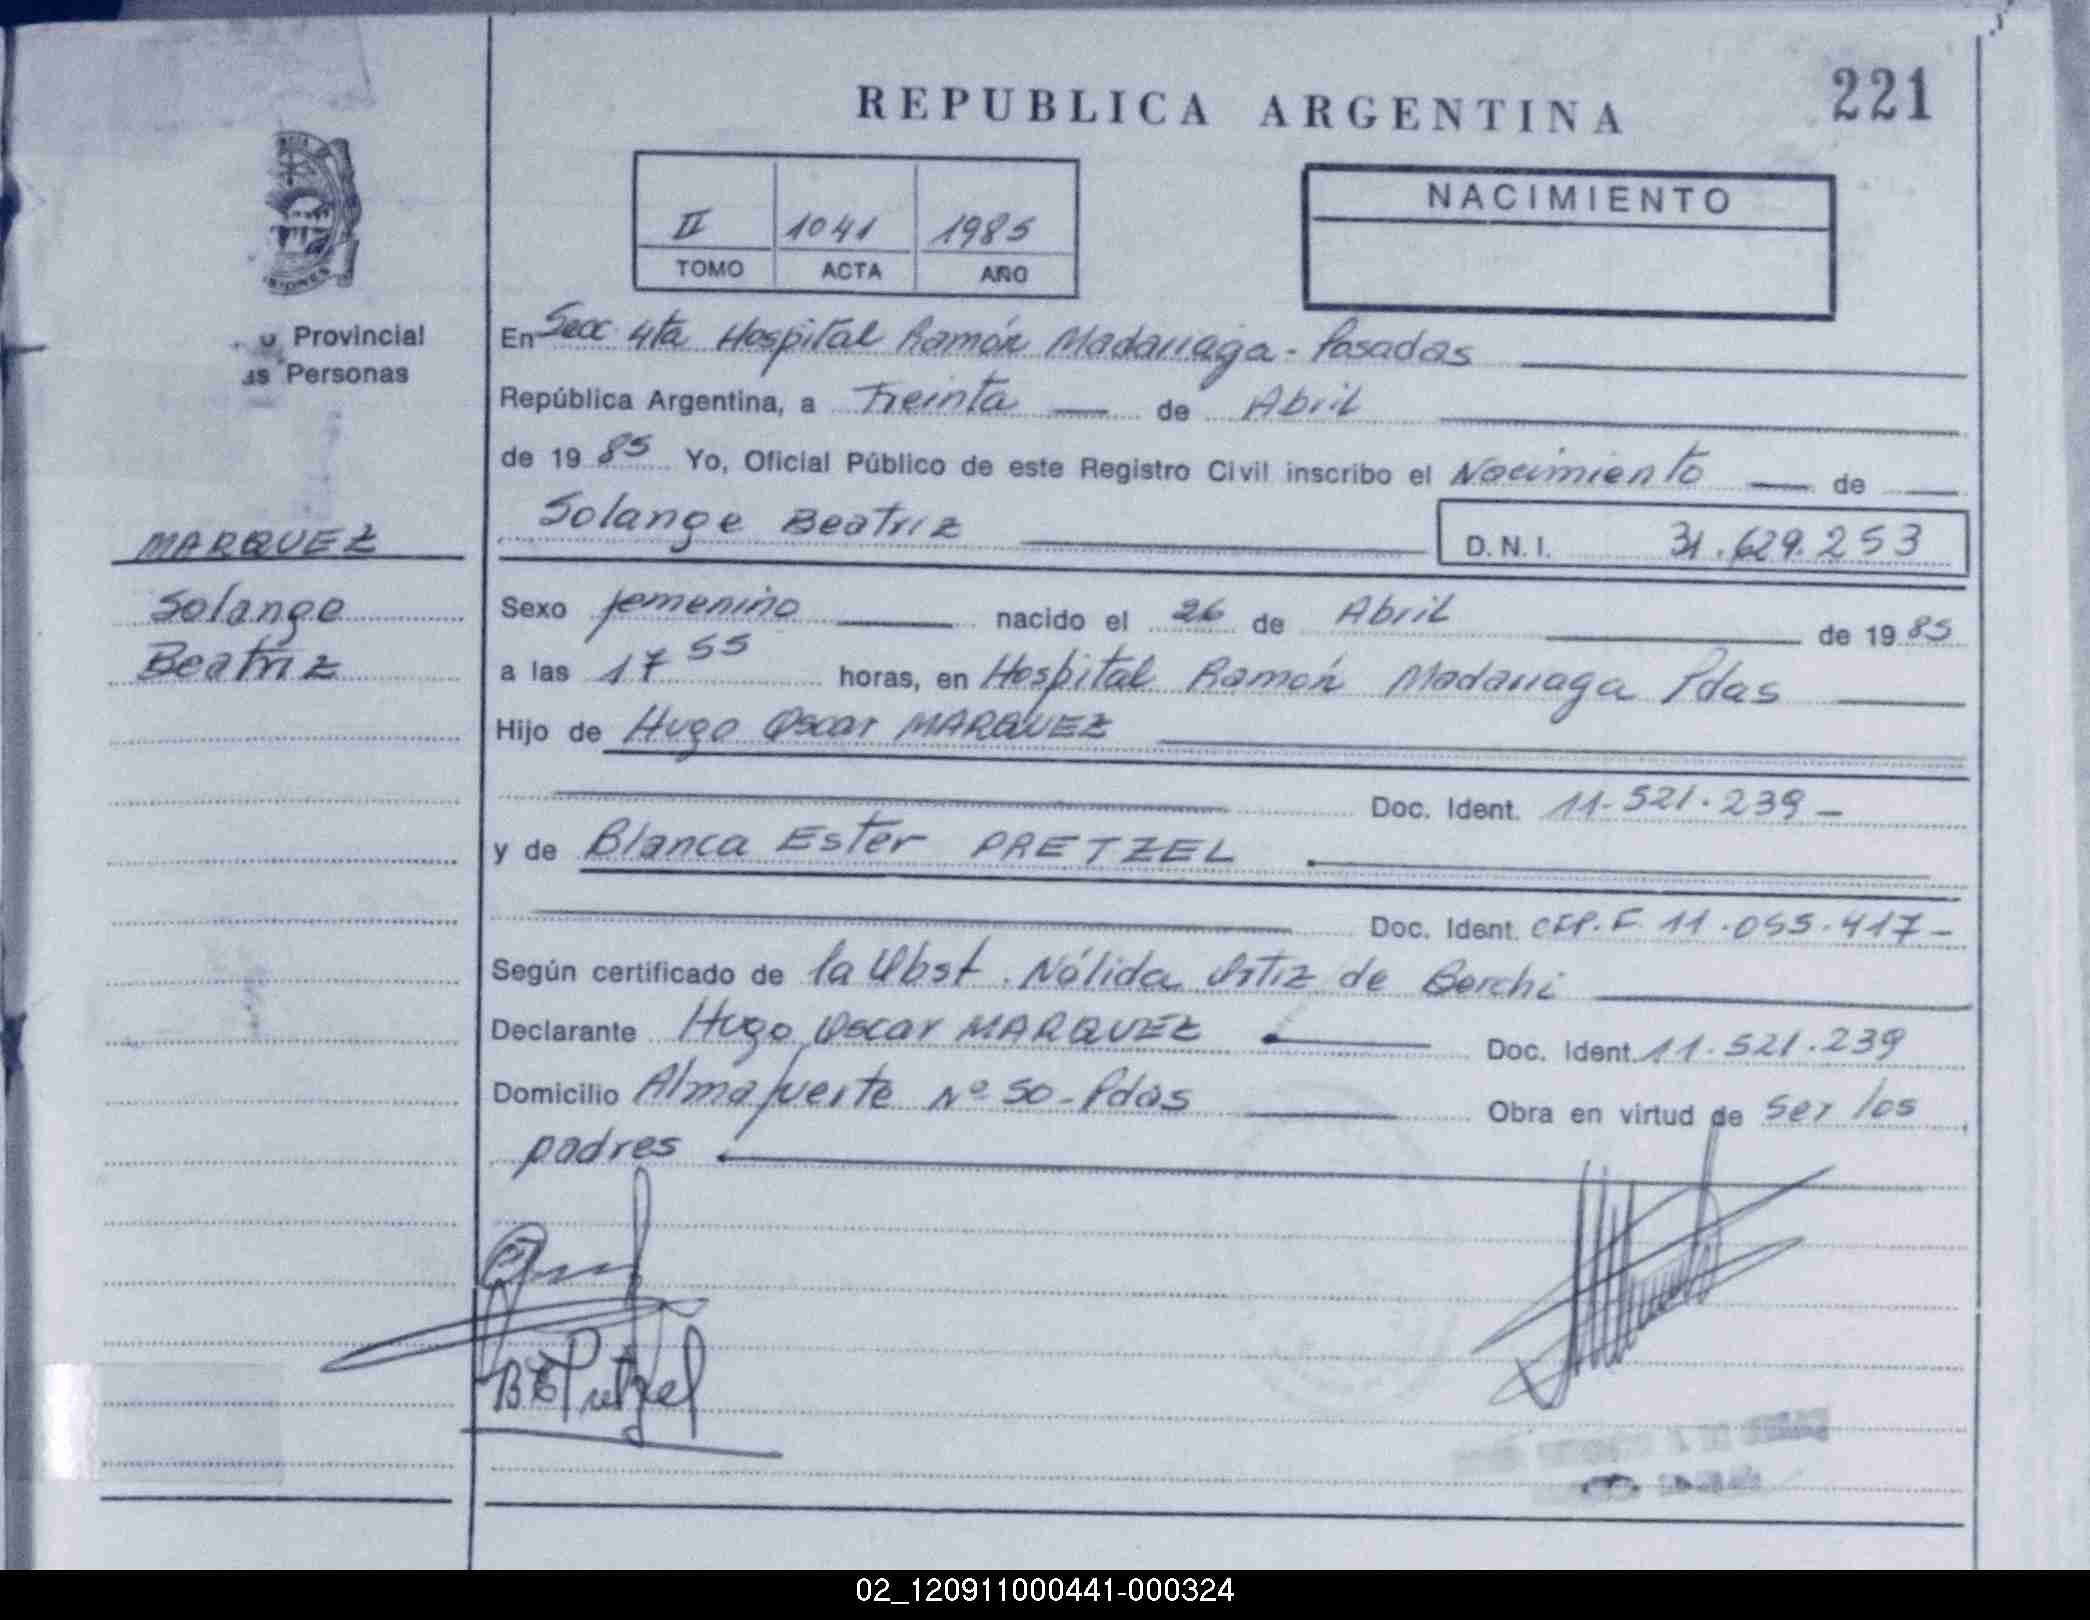 221
REPUBLICA ARGENTINA
NACIMIENTO
II 1041 1985
TOMO ACTA AÑO
Provincial
Personas
En Secc 4ta Hospital Ramón Madariaga - Posadas
República Argentina, a Treinta de Abril
de 1985 Yo, Oficial Público de este Registro Civil inscribo el Nacimiento de
Solange Beatriz
D.N.I. 31.629.253
MARQUEZ
Solange
Beatriz
Sexo femenino nacido el 26 de Abril de 1985
a las 17 55 horas, en Hospital Ramón Madariaga Pdas
Hijo de Hugo Oscar MARQUEZ
Doc. Ident. 11-521.239-
y de Blanca Ester PRETZEL
Doc. Ident. F. 11.055.417-
Según certificado de la Obst. Nélida Ortiz de Berchi
Declarante Hugo Oscar MARQUEZ Doc. Ident. 11.521.239
Domicilio Almafuerte Nº 50 - Pdas Obra en virtud de ser los
padres
B E Pretzel
02_120911000441-000324